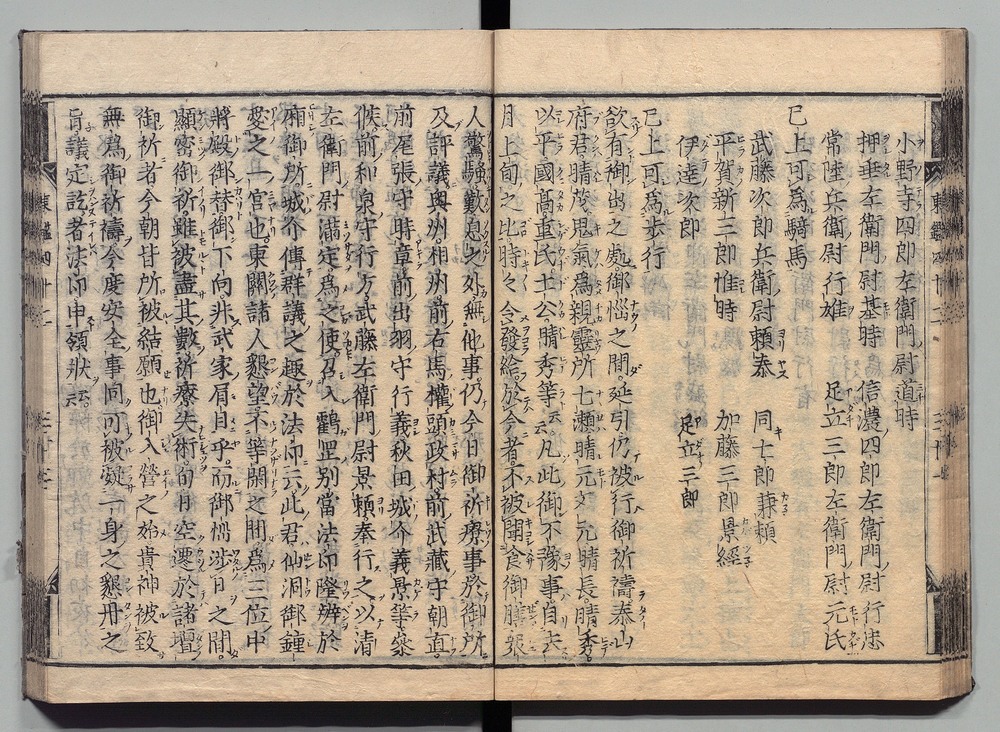 小野寺四郎左衛門尉道時
押垂左衛門尉基時 信濃四郎左衛門尉行忠
常陸兵衛尉行雄 足立三郎左衛門尉元氏
已上可為騎馬
武藤次郎兵衛尉頼泰 同七郎兼頼
平賀新三郎惟時 加藤三郎景經
伊達次郎 足立三郎
已上可為歩行
欲有御出之處御惱之間延引仍被行御祈禱泰山
府君晴茂思氣為親靈所七瀬晴元文元晴長晴秀
以平國髙重氏土公晴秀等云云凡此御不豫事自去
月上旬之比時々令發給於今者不被聞食御膳
人驚騒歎息之外無他事仍今日御祈療事於御所
及評議奥州相州前右馬權頭政村前武藏守朝直
前尾張守時章前出羽守行義秋田城介義景等參
候前和泉守行方武藤左衛門尉景頼奉行之以清
左衛門尉滿定為之使召入鶴岡別當法印隆辨於
廂御所城介傳群議之趣於法印云此君仙洞御鍾
愛之一宮也東關諸人懇望不等閑之間為三位中
將殿御替御下向非武家眉目乎而御惱渉日之間
顯密御祈雖被盡其數祈療失術旬月空遷於諸壇
御祈者今朝甘所被結願也御入營之始貴神被致
無為御祈禱今度安全事同可被凝一身之懇丹之
旨議定訖者法印申領状云云
東鑑四十二